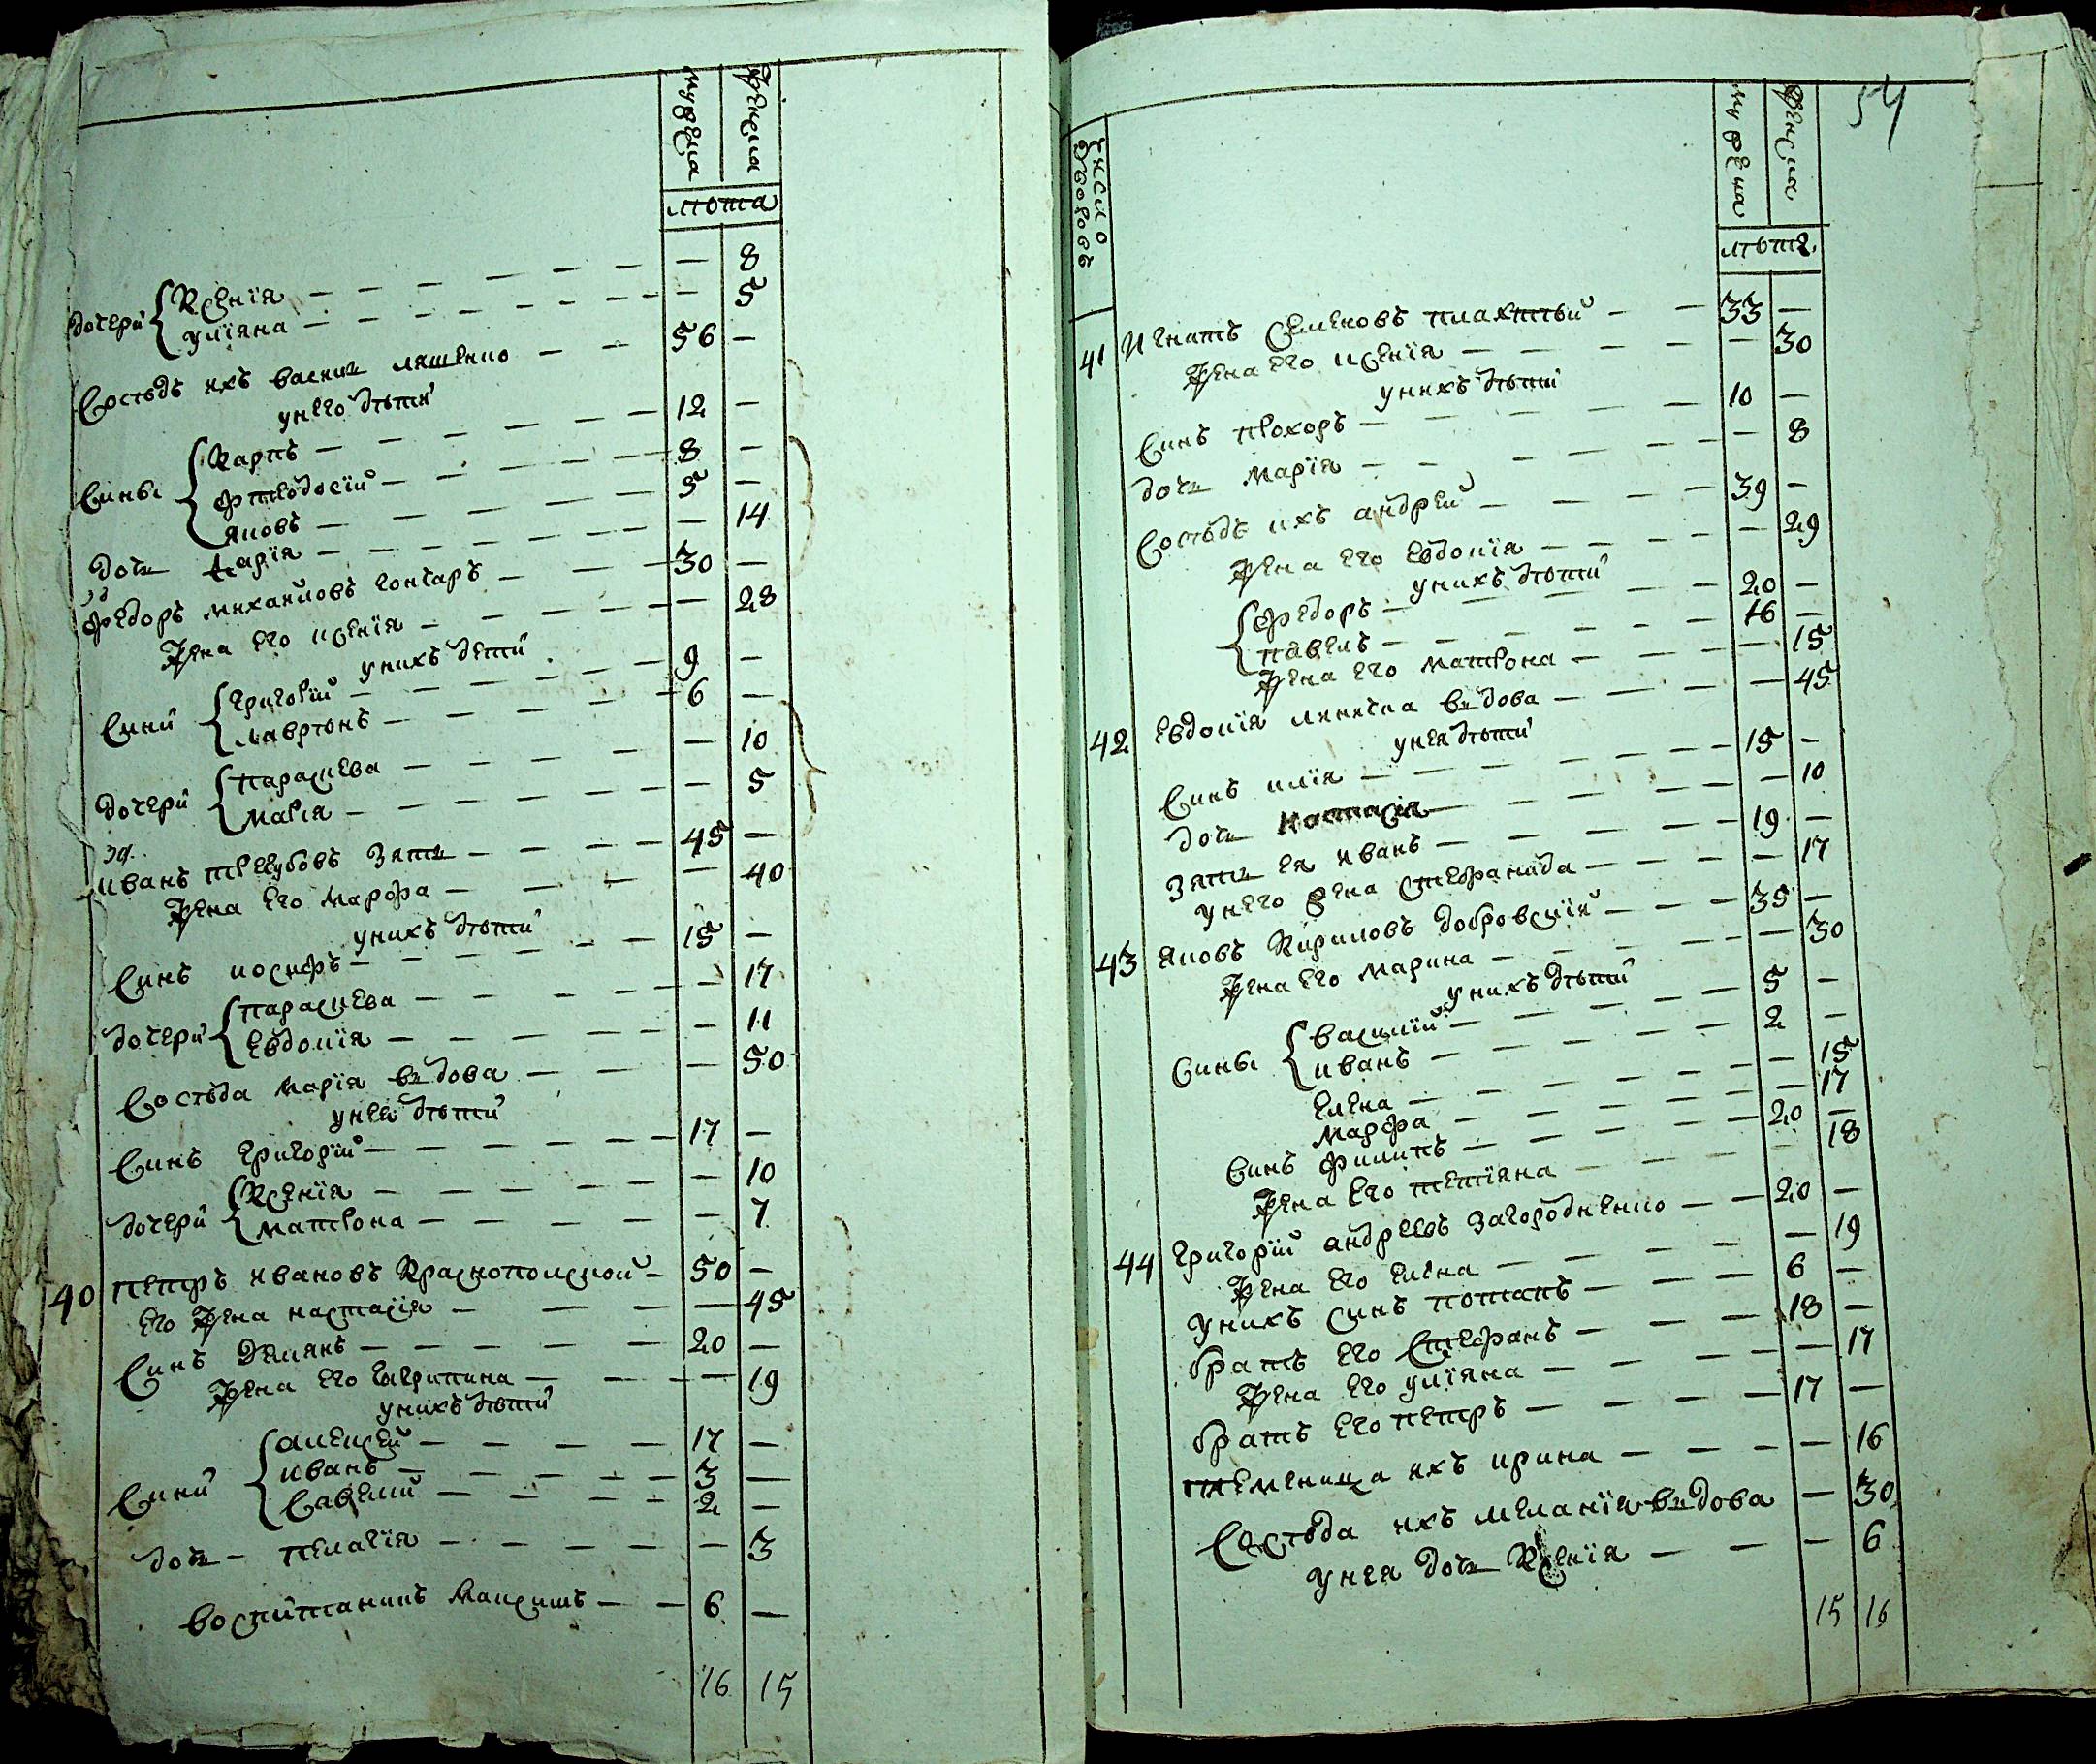 мужеска женска
лѣта
дочери Ксенїя — 8
Улїяна — 5
Состѣдъ ихъ василь ляшенко 56 —
унего дѣти
Сины Карпъ 12 —
Фтеодосїй 8 —
Яковъ 5 —
дочь Марїя — 14
38
Федоръ михайловъ гончаръ 30 —
Жена его ксенїя — 28
унихъ дети
Сини григорїй 9 —
Мавртонъ 6 —
дочери параскева — 10
Марїя — 5
39
иванъ зять 45 —
Жена его Марфа — 40
унихъ дѣти
Синъ иосифъ 15 —
дочери параскева — 17
Евдокїя — 11
Состѣда Марїя вьдова — 50
унея дѣти
Синъ григорїй 17 —
дочери Ксенїя — 10
матрона — 7
40 петръ ивановъ Краснопольской 50 —
Его Жена настасїя — 45
Синъ Демянъ 20 —
Жена его гаврипина — 19
унихъ дѣти
Сини алексей 17 —
иванъ 3 —
Савелий 2 —
дочь пелагїя — 3
воспитаникъ Максимъ 6 —
16 15
54
число дворовъ
мужеска женска
лѣта
41 Игнатъ Семеновъ плахтѣй 33 —
Жена его ксенїя — 30
унихъ дѣти
Синъ прохоръ 10 —
дочь Марїя — 8
Состѣдъ ихъ андрей 39 —
Жена его Евдокїя — 29
унихъ дѣти
федоръ 20 —
павелъ 16 —
Жена его матрона — 15
42 Евдокїя вьдова — 45
унея дѣти
Синъ илїя 15 —
дочь настасїя — 10
зять ея иванъ 19 —
унего жена стефанида — 17
43 Яковъ Кириловъ добровскїй 35 —
Жена его Марина — 30
унихъ дѣти
Сины василїй 5 —
иванъ 2 —
Елена — 15
Марфа — 17
Синъ филипъ 20 —
Жена Его тетїяна — 18
44 григорїй андреевъ загородненко 20 —
Жена его Елена — 19
унихъ синъ потапъ 6 —
братъ его Стефанъ 18 —
Жена его улїяна — 17
братъ его петръ 17 —
племеница ихъ ирина — 16
Состѣда ихъ меланїя вьдова — 30
унея дочь Ксенїя — 6
15 16